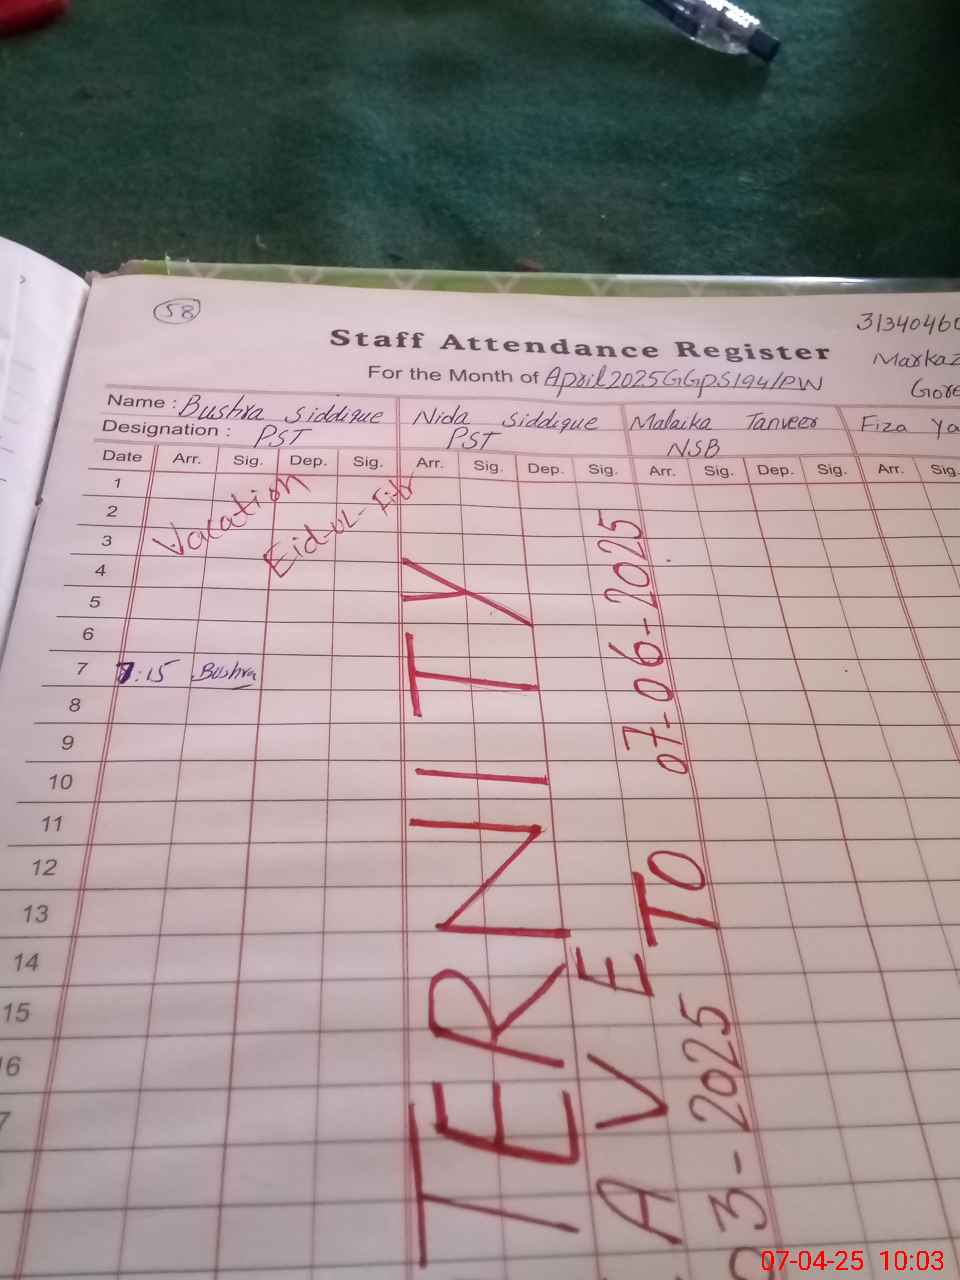 58
Staff Attendance Register
31340460
For the Month of April 2025 GGPS 194/PW
Markaz
Gore
Name : Bushra Siddique Nida Siddique Malaika Tanveer Fiza Ya
Designation : PST PST NSB
Date Arr. Sig. Dep. Sig. Arr. Sig. Dep. Sig. Arr. Sig. Dep. Sig. Arr. Sig.
1
2
3
4
5
6
7 :15 Bushra
8
9
10
11
12
13
14
15
16
7
Vacation
Eid-UL-Fitr
TERNITY
AVE
03-2025 TO 07-06-2025
07-04-25 10:03